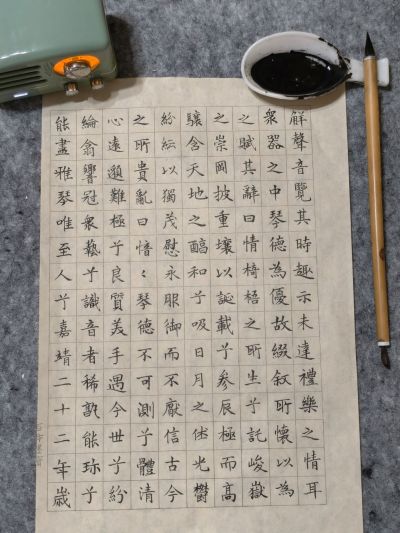 解聲音覽其時趣示未達禮樂之情耳
衆器之中琴德為優故綴叙所懷以為
之賦其辭曰情椅梧之所生兮託峻嶽
之崇岡披重壤以誕載兮參辰極而高
驤含天地之醕和兮吸日月之休光鬱
紛紜以獨茂慰永服御而不厭信古今
之所貴亂曰愔〻琴德不可測兮體清
心遠邈難極兮良質美手遇今世兮紛
綸翕響冠衆藝兮識音者稀孰能珎兮
能盡雅琴唯至人兮嘉靖二十二年歲